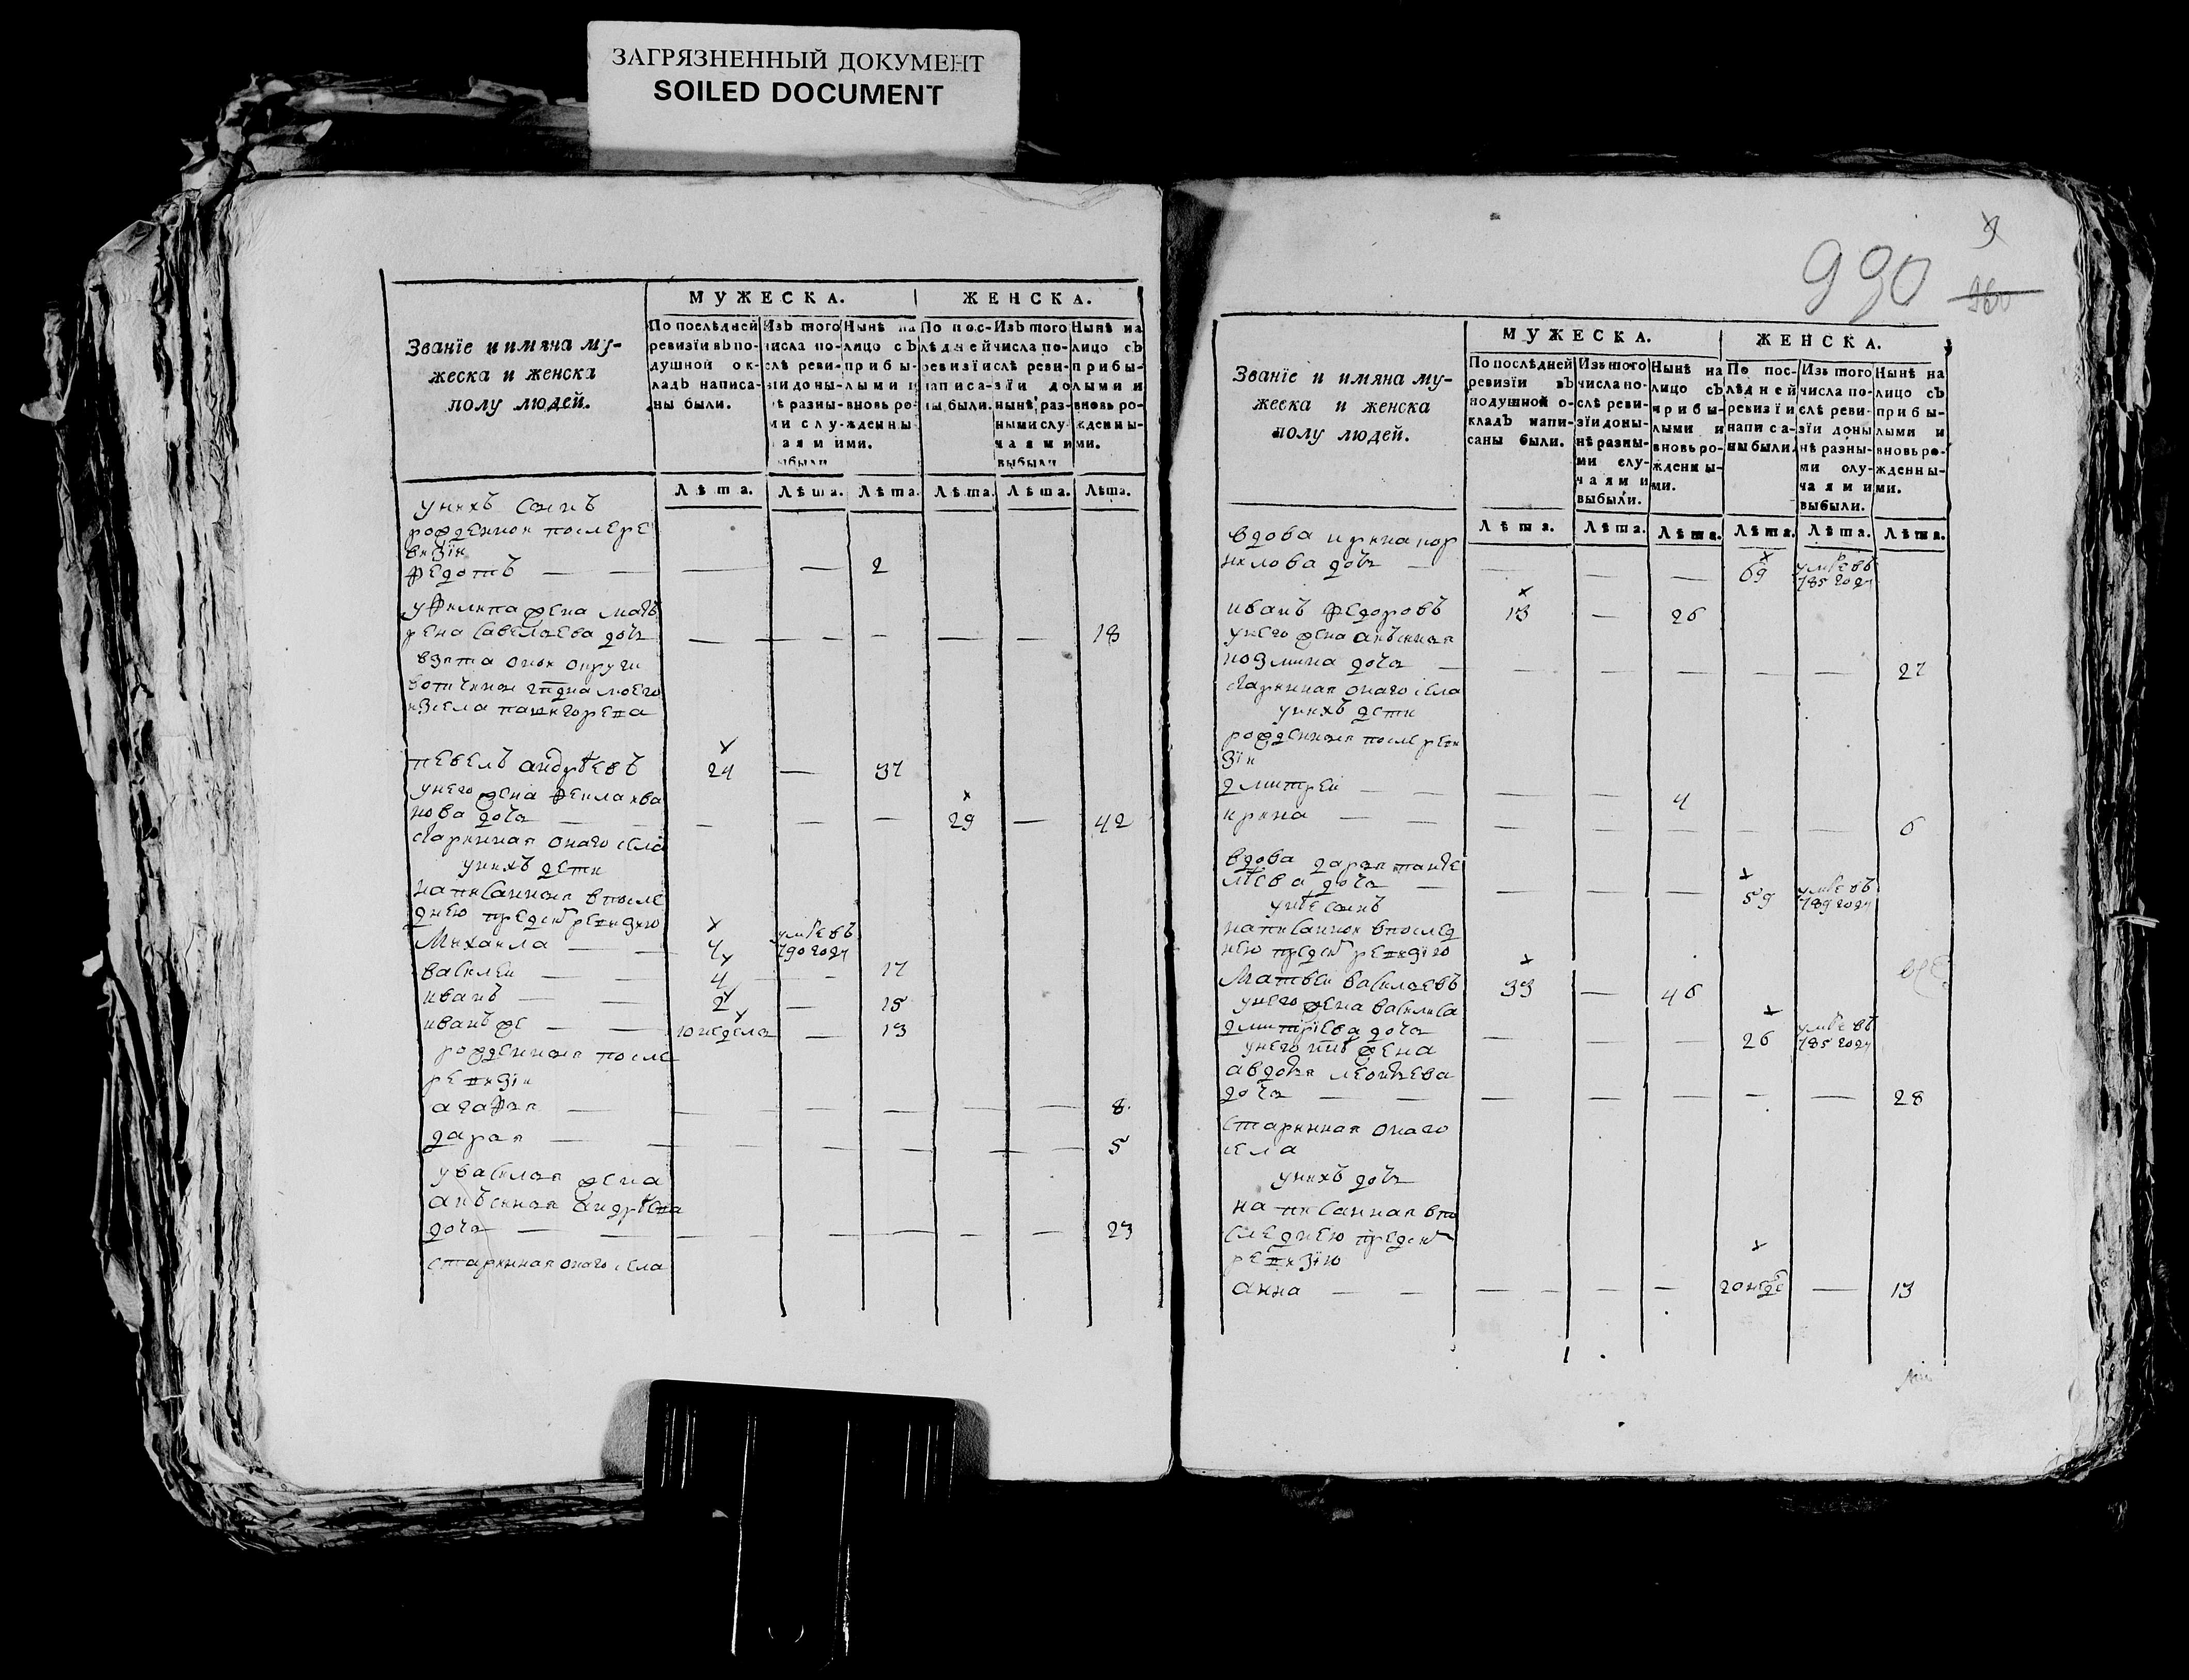 ЗАГРЯЗНЕННЫЙ ДОКУМЕНТ
SOILED DOCUMENT
МУЖЕСКА. ЖЕНСКА.
Званїе и имяна му-
жеска и женска
полу людей.
По послѣдней ревизїи въ по-душной ок-ладъ написа-ны были.
Изъ того числа по-слѣ реви-зїи до ны-нѣ разны-ми слу-чаями выбыли
Нынѣ на лицо съ прибы-лыми и вновь ро-жденны-ми.
По пос-лѣдней ревизїи написа-ны были.
Изъ того числа по-слѣ реви-зїи до нынѣ раз-ными слу-чаями выбыли
Нынѣ на лицо съ прибы-лыми и вновь ро-жденны-ми.
Лѣта. Лѣта. Лѣта. Лѣта. Лѣта. Лѣта.
унихъ сынъ
рожденнои послере
визїи
Федотъ — — — — 2
уФилипа жена матъ
рена савельева дочь — — — — — — 18
взята онои округи
вотчины гпдна моего
изсела
павелъ андрѣевъ 24 — 37
унего жена Фекла ива
нова дочь — — — — — 29 — 42
старинная онаго села
унихъ дети
написанныя впосле
днею предъ ревизию
Михаила — — 4 умре въ 790 году
василеи — — 4 — 17
иванъ — — 2 — 15
иванъ же — — 10 недель — 13
рожденныя после
ревизїи
агаФья — — — — — — 8.
дарья — — — — — — — 5
увасилья жена
аксинья андрѣева
дочь — — — — — — — — 23
старинная онаго села
990
960
МУЖЕСКА. ЖЕНСКА.
Званїе и имяна му-
жеска и женска
полу людей.
По послѣдней ревизїи въ подушной о-кладъ напи-саны были.
Изъ того числа по-слѣ реви-зїи до ны-нѣ разны-ми слу-чаями выбыли.
Нынѣ на лицо съ прибы-лыми и вновь ро-жденны-ми.
По пос-лѣдней ревизїи написа-ны были.
Изъ того числа по-слѣ реви-зїи до ны нѣ разны-ми слу-чаями выбыли.
Нынѣ на лицо съ прибы-лыми и вновь ро-жденны-ми.
Лѣта. Лѣта. Лѣта. Лѣта. Лѣта. Лѣта.
вдова ирина кор
нилова дочь — — — — 69 умре въ 785 году
иванъ Федоровъ 13 — 26
унего жена аксинья
козмина дочь — — — — — — 27
старинная онаго села
унихъ дети
рожденныя после реви
зїи
дмитреи — — — — 4
ирина — — — — — — — 6
вдова дарья
дочь — — — — 59 умре въ 789 году
унее сынъ
написаннои впослед
нею предъ ревизїю
Матвеи васильевъ 33 — 46
унего жена василиса
дмитрїева дочь — — — 26 умре въ 785 году
унего жена
авдотья леонтьева
дочь — — — — — — — 28
старинная онаго
села
унихъ дочь
написанная впо
следнею предъ
ревизїю
анна — — — — — — 20 неде — 13